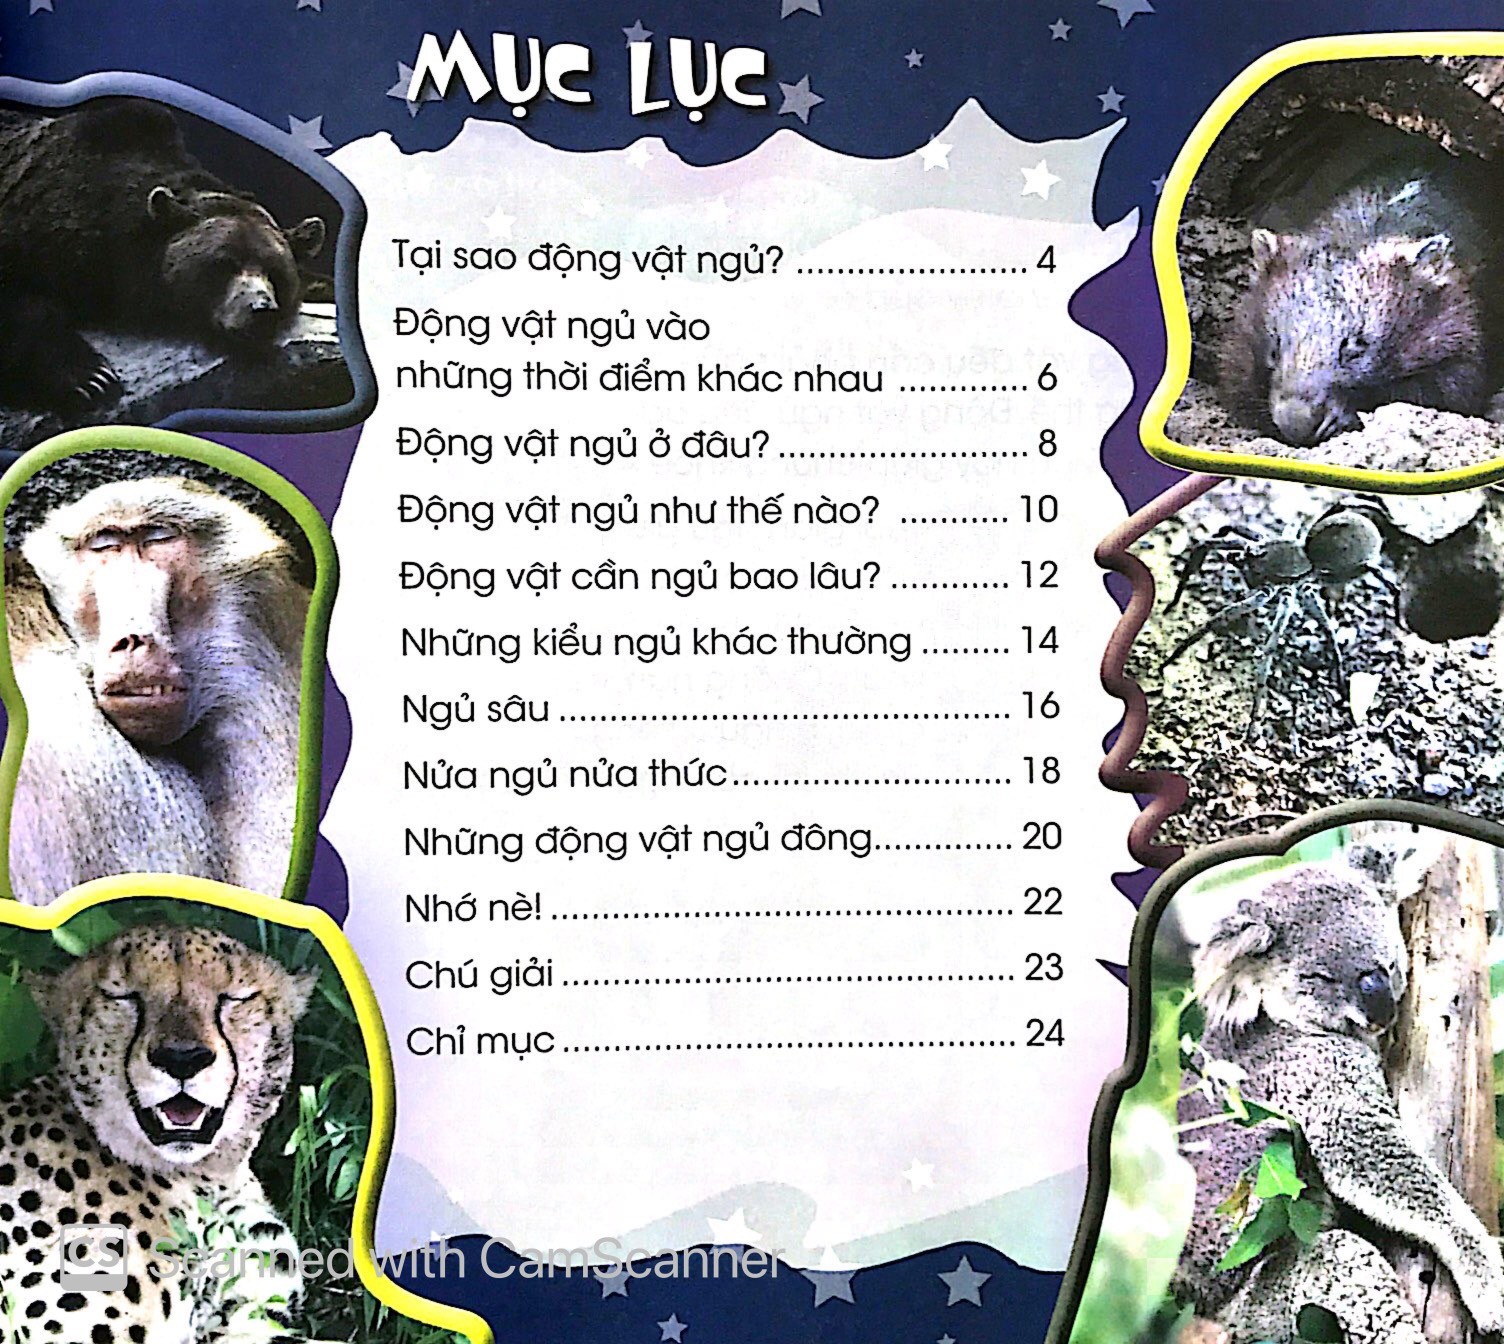 MỤC LỤC
Tại sao động vật ngủ? ....................... 4
Động vật ngủ vào
những thời điểm khác nhau ............. 6
Động vật ngủ ở đâu? ......................... 8
Động vật ngủ như thế nào? ........... 10
Động vật cần ngủ bao lâu? ............ 12
Những kiểu ngủ khác thường ......... 14
Ngủ sâu ............................................. 16
Nửa ngủ nửa thức............................ 18
Những động vật ngủ đông.............. 20
Nhớ nè! .............................................. 22
Chú giải ............................................. 23
Chỉ mục ............................................. 24
CS Scanned with CamScanner